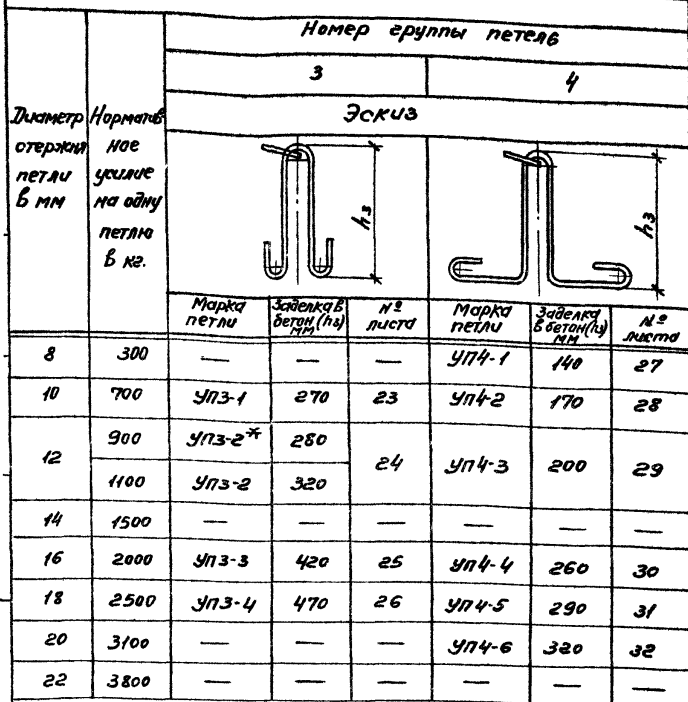 Номер группы петель
3 4
Эскиз
Диаметр стержня петли в мм
Норматив ное усилие на одну петлю в кг.
h3 h3
Марка петли Заделка в бетон (h3) мм № листа Марка петли Заделка в бетон (h3) мм № листа
8 300 — — — УП4-1 140 27
10 700 УП3-1 270 23 УП4-2 170 28
12 900 УП3-2* 280 24 УП4-3 200 29
1100 УП3-2 320
14 1500 — — — — — —
16 2000 УП3-3 420 25 УП4-4 260 30
18 2500 УП3-4 470 26 УП4-5 290 31
20 3100 — — — УП4-6 320 32
22 3800 — — — — — —